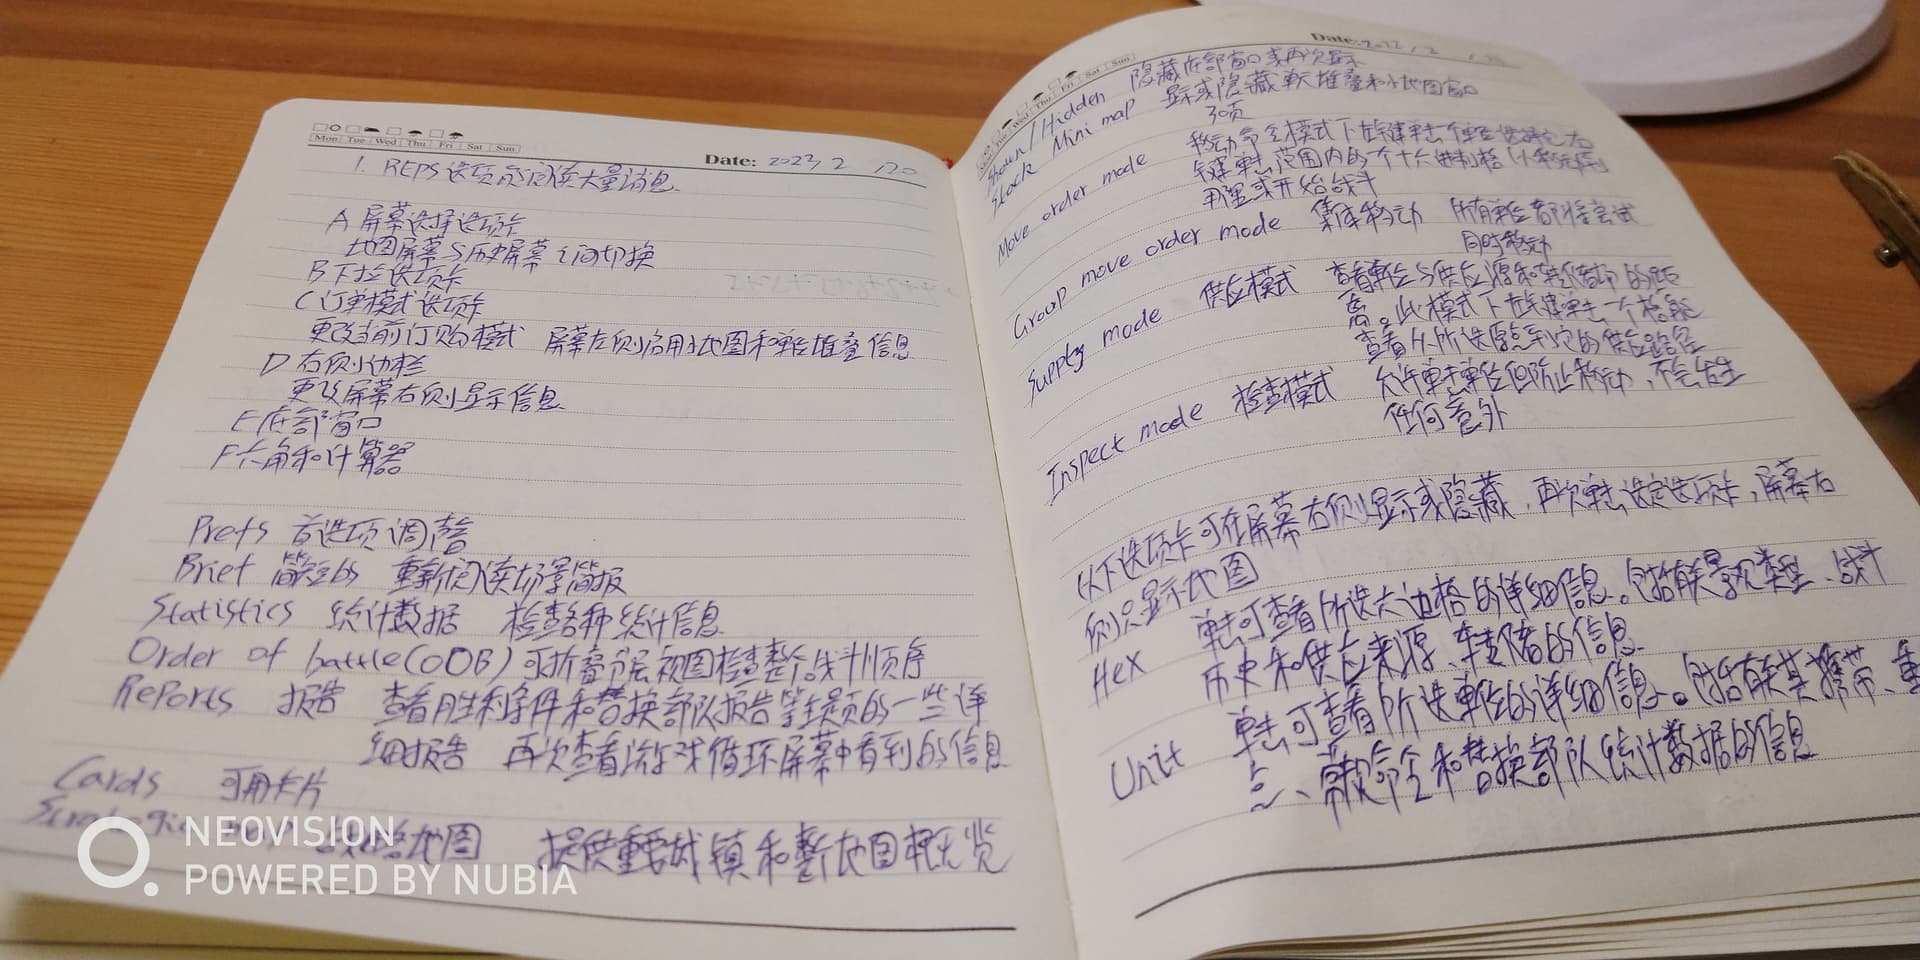 Mon Tue Wed Thu Fri Sat Sun
Date: 2023 2 20
1. REPS选项后阅读大量消息
A 屏幕选择选项卡
地图屏幕与历史屏幕之间切换
B 下拉选项卡
C 订单模式选项卡
更改当前订购模式 屏幕左侧启用小地图和单位堆叠信息
D 右侧小边栏
更改屏幕右侧显示信息
E 底部窗口
F 六角和计算器
Prefs 首选项调整
Brief 简短的 重新阅读场景简报
Statistics 统计数据 检查各种统计信息
Order of battle(OOB) 可折叠分层视图检查整个战斗顺序
Reports 报告 查看胜利条件和替换部队报告等主题的一些详
细报告 再次查看游戏循环屏幕中看到的信息
Cards 可用卡片
地图 提供重要城镇和整个地图概览
NEOVISION
POWERED BY NUBIA
Date: 2022 2
Mon Tue Wed Thu Fri Sat Sun
Shown/Hidden 隐藏底部窗口或再次显示
Stack Mini map 显示或隐藏 堆叠和小地图窗口
30页
Move order mode 移动命令模式下左键单击 单位 右
键单击范围内的一个十六进制格
再里或开始战斗
Group move order mode 集体移动 所有单位都将尝试
同时移动
Supply mode 供应模式 查看单位与供应源和 的距
离。此模式下左键单击一个格能
查看从所选原点到它的供应路径
Inspect mode 检查模式 允许单击单位但防止移动，不会发生
任何意外
以下选项卡可在屏幕右侧显示或隐藏，再次单击选定选项卡，屏幕右
侧只显示地图
Hex 单击可查看所选六边格的详细信息。包括有关景观类型、战斗
历史和供应来源、 的信息
Unit 单击可查看所选单位的详细信息。包括有关其携带、重
点、 命令和替换部队统计数据的信息